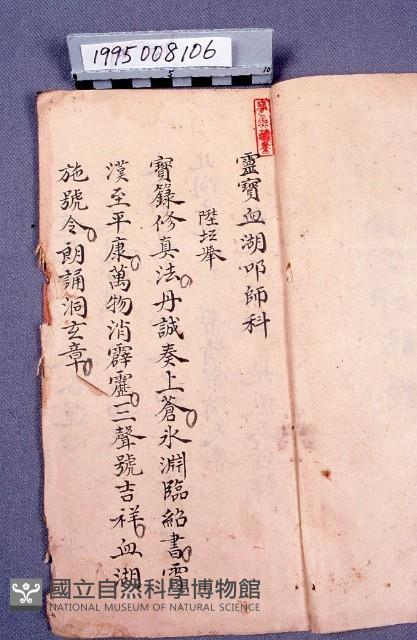 1995008106
靈寶血湖叩師科
陞坛舉
寶籙修真法丹誠奏上蒼氷淵臨紹書霄
漢至平康萬物消霹靂三聲號吉祥血湖
施號令朗誦洞玄章
國立自然科學博物館
NATIONAL MUSEUM OF NATURAL SCIENCE